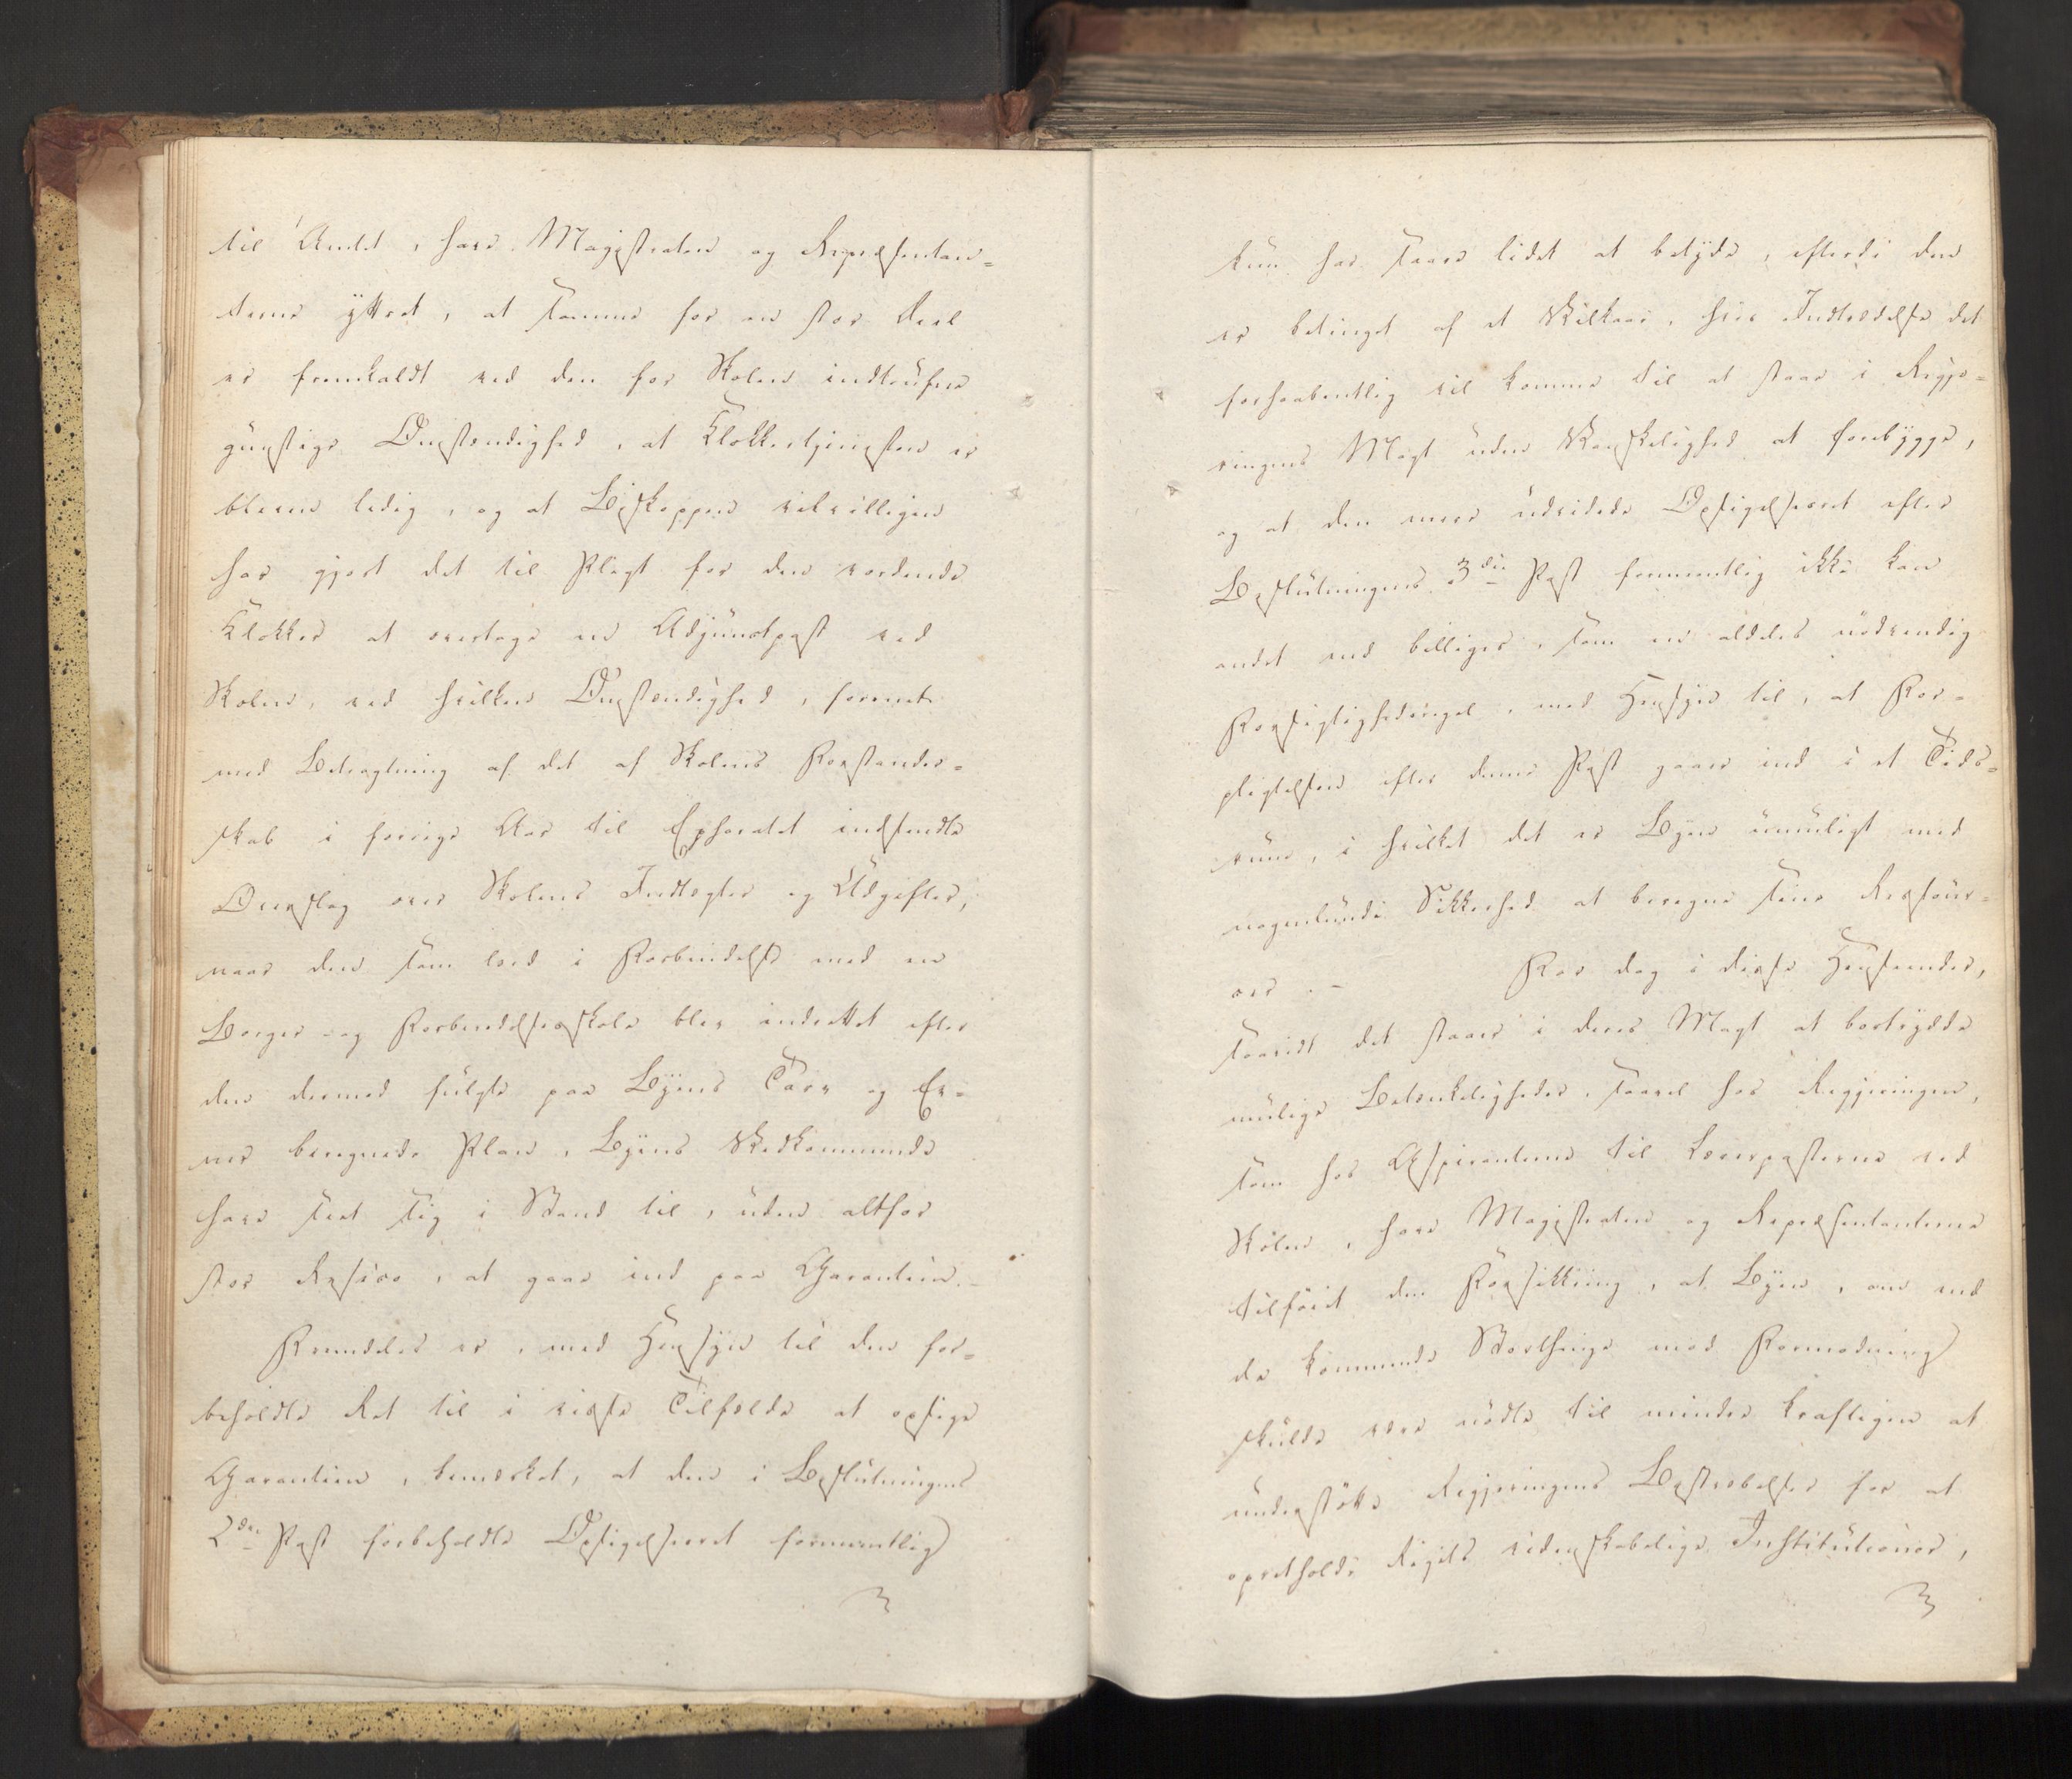 til Andet, have Magistraten og Repræsentan=
terne yttret, at samme for en stor Deel
er fremkaldt ved den for Skolen indtrufne
gunstige Omstændighed, at Klokkertjenesten er
bleven ledig, og at Biskoppen velvilligen
har gjort det til Pligt for den vordende
Klokker at overtage en Adjunctpost ved
Skolen, ved hvilken Omstændighed, forenet
med Betragtning af det af Skolens Forstander=
skab i forrige Aar til Ephoratet indsendte
Overslag over Skolens Indtægter og Udgifter,
naar den som lærd i Forbindelse med en
Borger- og Forberedelsesskole blev indrettet efter
den dermed fulgte paa Byens Tarv og Ev=
ner beregnede Plan, Byens Vedkommende
have seet sig i Stand til, uden altfor
stor Risico, at gaae ind paa Garantien.-
Fremdeles er, med Hensyn til den for=
beholdte Ret til i visse Tilfælde at opsige
Garantien, bemærket, at den i Beslutningens
2den Post forbeholdte Opsigelsesret formeentlig
kun har saare lidet at betyde, efterdi den
er betinget af et Vilkaar, hvis Indtrædelse det
forhaabentlig vil komme til at staae i Regje=
ringens Magt uden Vanskelighed at forebygge,
og at den mere udvidede Opsigelsesret efter
Beslutningens 3die Post formeentlig ikke kan
andet end billiges, som en aldeles nødvendig
Forsigtighedsregel, med Hensyn til, at For=
pligtelsen efter denne Post gaaer ind i et Tids=
rum, i hvilket det er Byen umuligt med
nogenlunde Sikkerhed at beregne sine Ressour=
cer.- For dog i disse Henseender,
saavidt det staaer i deres Magt at bortrydde
mulige Betænkeligheder, saavel hos Regjeringen,
som hos Aspiranterne til Lærerposterne ved
Skolen, have Magistraten og Repræsentanterne
tilføiet den Forsikkring, at Byen, om end
de kommende Storthinge mod Formodning
skulde være nødte til mindre kraftigen at
understøtte Regjeringens Bestræbelser for at
opretholde Rigets videnskabelige Institutioner,